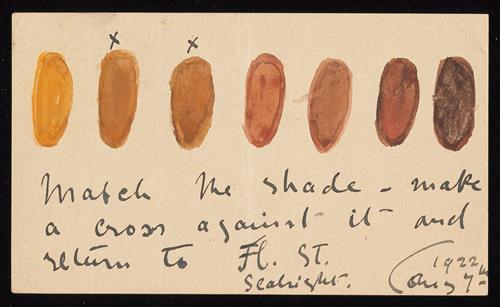 x x
Match the shade - make
a cross against it and
return to Fl. St.
Sealright.
1922
Aug 7th